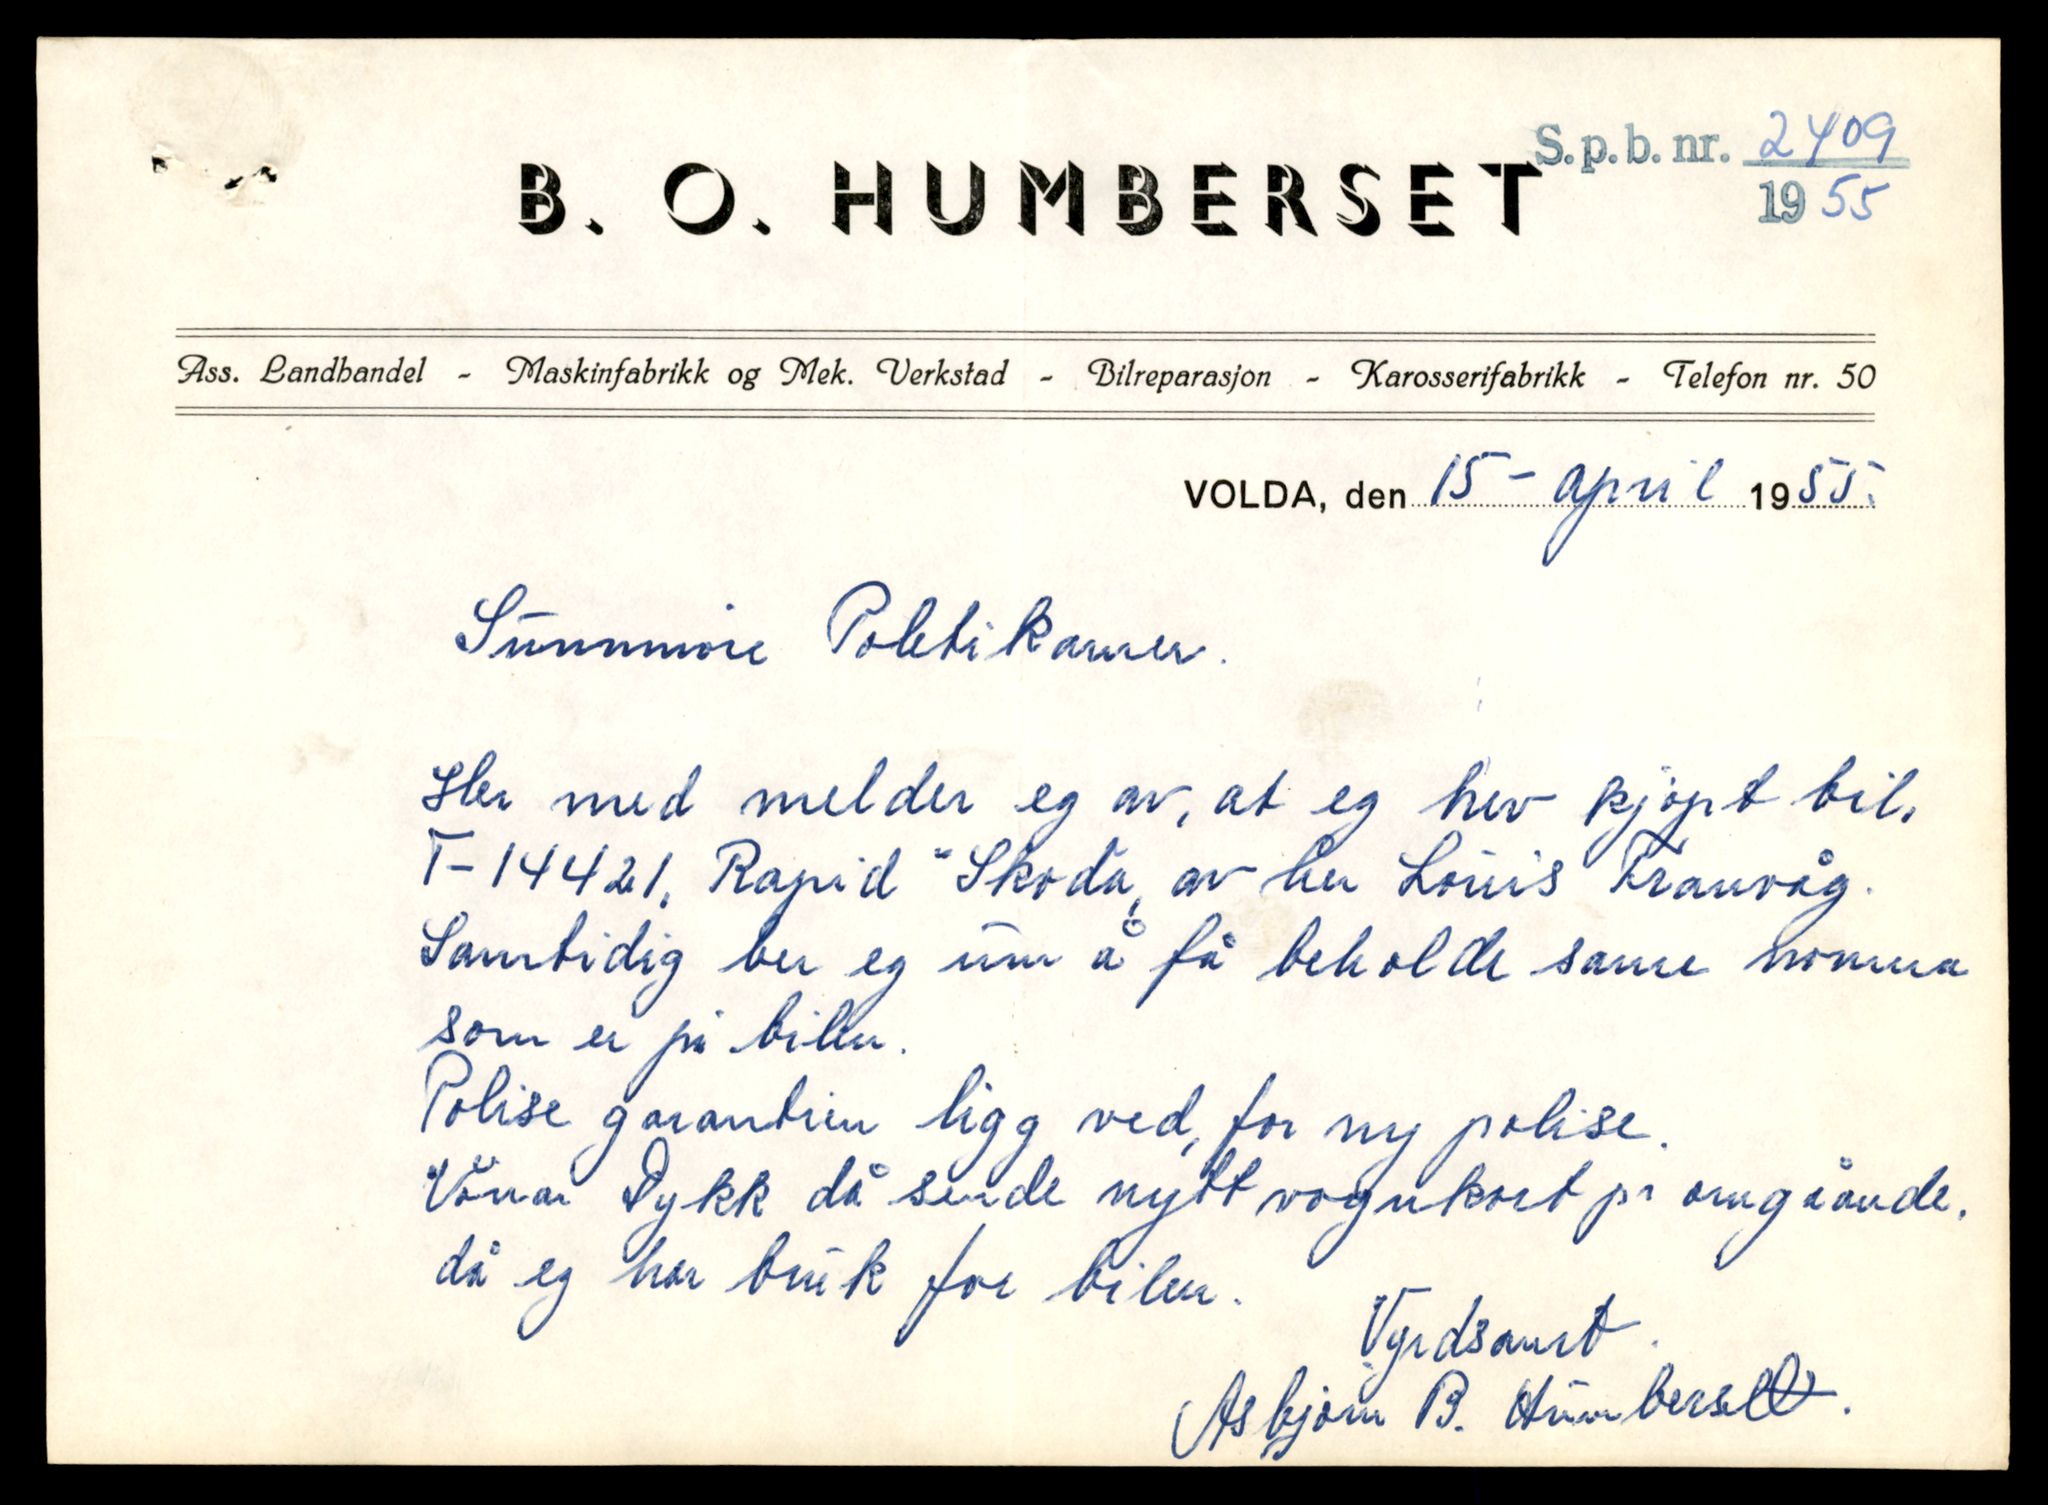 S.p.b. nr. 2409
1955
B. O. HUMBERSET
Ass. Landhandel - Maskinfabrikk og Mek. Verkstad - Bilreparasjon - Karosserifabrikk - Telefon nr. 50
VOLDA, den 15 - april 1955.
Sunnmøre Poletikamer.
Her med melder eg av, at eg hev kjøpt bil,
T-14421, Rapid "Skoda, av her Louis Tranvåg.
Samtidig ber eg um å få beholde same nomma
som er på bilen.
Polise garantien ligg ved, for ny polise.
Vonar Dykk då sende nytt vognkort på omgåande,
då eg har bruk for bilen.
Vyrdsamt.
Asbjørn B. Humberset.